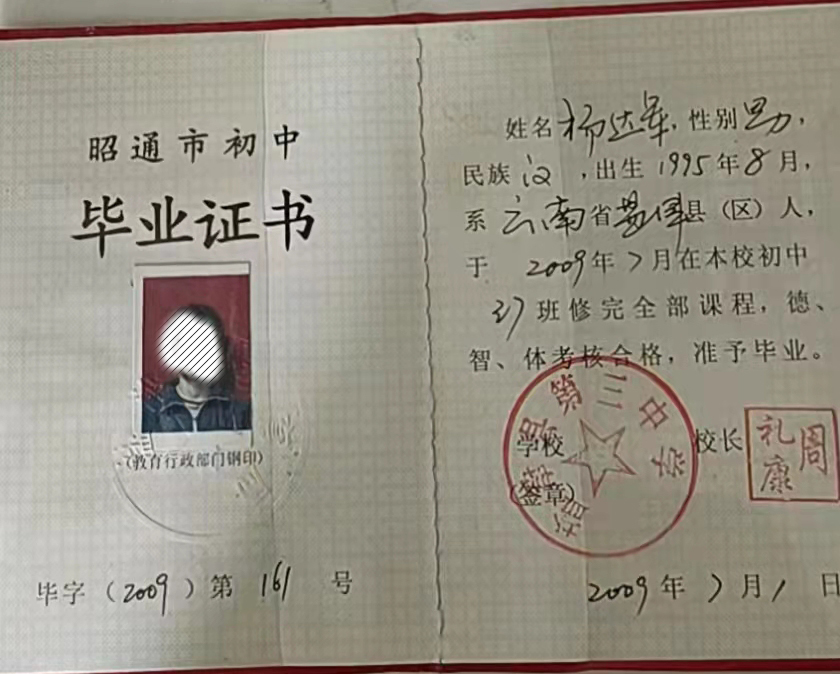 昭通市初中
毕业证书
(教育行政部门钢印)
毕字（2009）第 161 号
姓名 杨达军，性别 男，
民族 汉，出生 1995年8月，
系 云南省 县（区）人，
于 2009年7月在本校初中
班修完全部课程，德、
智、体考核合格，准予毕业。
学校
(签章)
第三中学
校长
周礼康
2009年7月1日